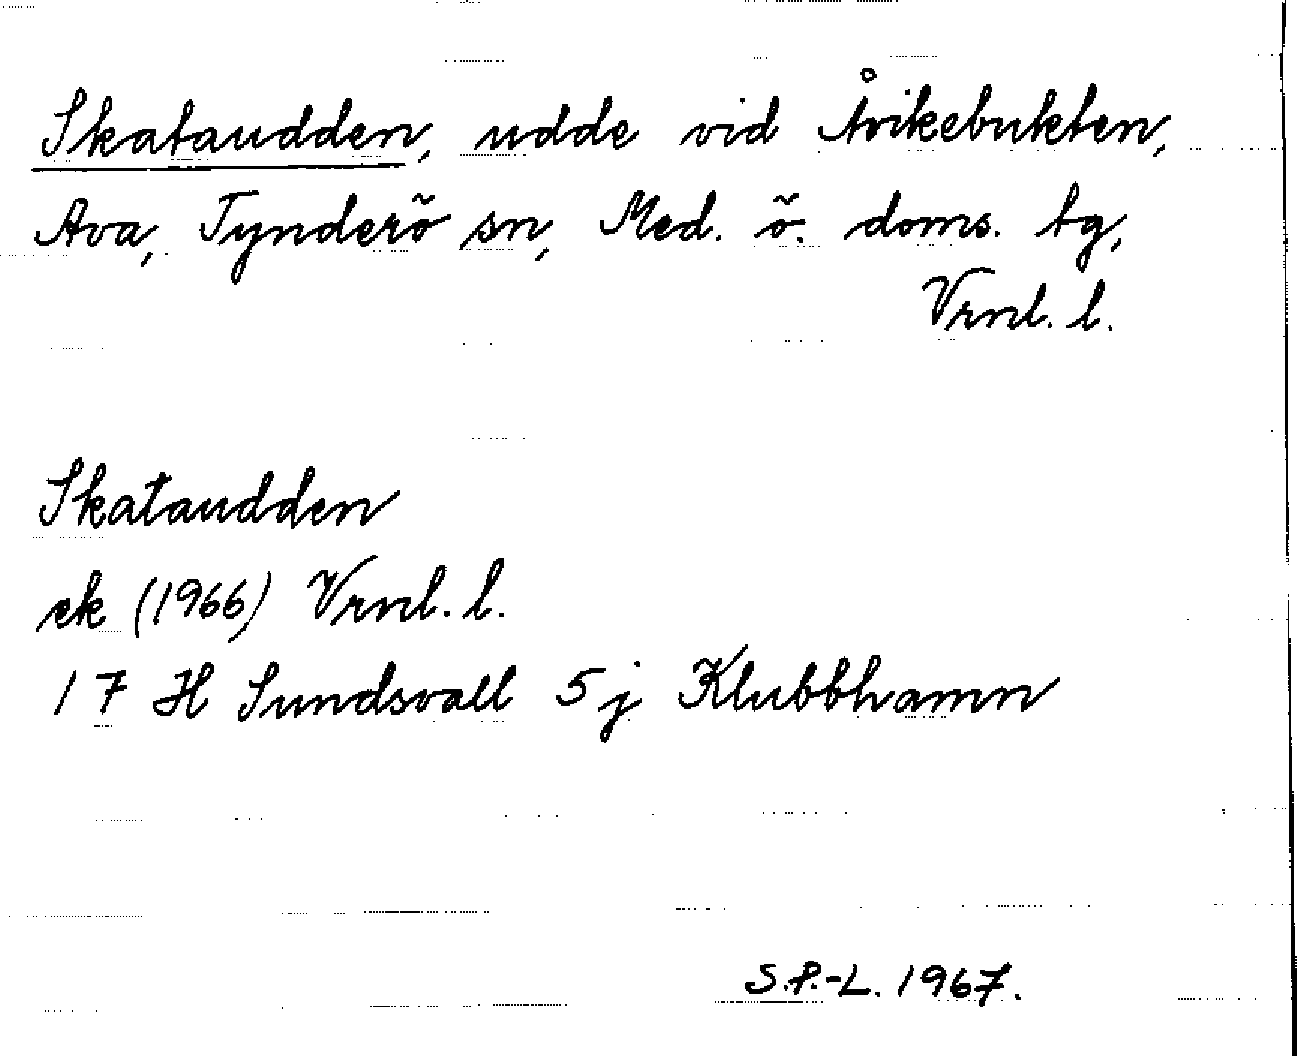 Skataudden, udde vid Åvikebukten,
Ava, Tynderö sn, Med. ö. doms. tg,
Vrnl. l.
Skataudden
ek (1966) Vrnl. l.
17 H Sundsvall 5 j Klubbhamn
S.P.-L. 1967.